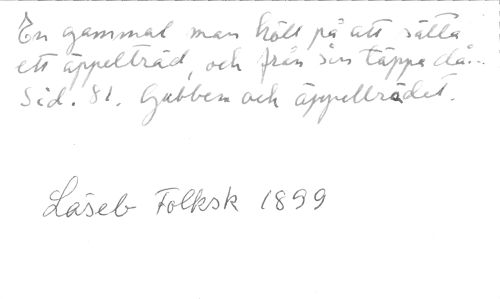 En gammal man höll på att sätta
ett äppelträd, och från sin täppa då...
Sid. 81. Gubben och äppelträdet.
Läseb Folksk 1899